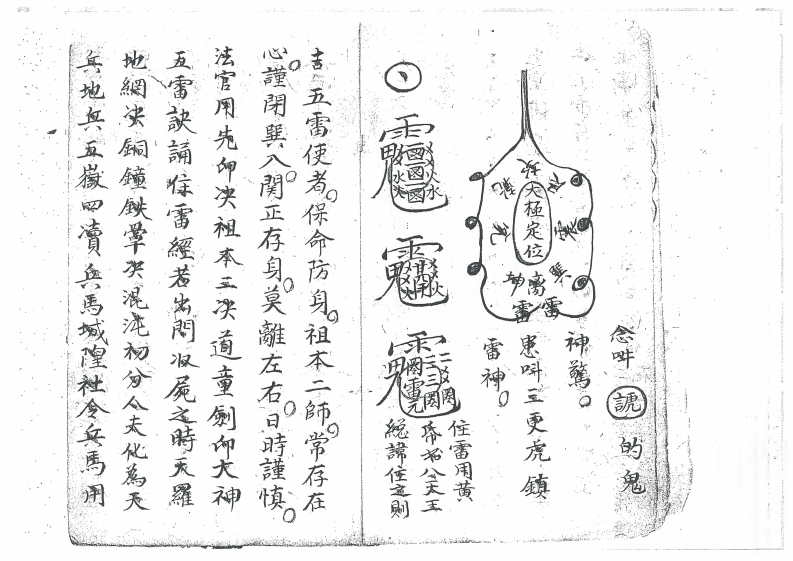 念叫 諕 的鬼
神驚。
惠叫三更虎鎮
雷神。
太極定位
住雷用黃
帋书公大王
總諱住之則
吉五雷使者。保命防身。祖本二師。常存在
心。謹閉巽入關。正存身。莫離左右。日時謹慎。
法官用先仰决祖本三决道童劍仰大神
五雷訣誦住雷經若出門收屍之時天羅
地網决銅鐘鉄罩决混沌初分公太化為天
兵地兵五嶽四瀆兵馬城隍社令兵馬用